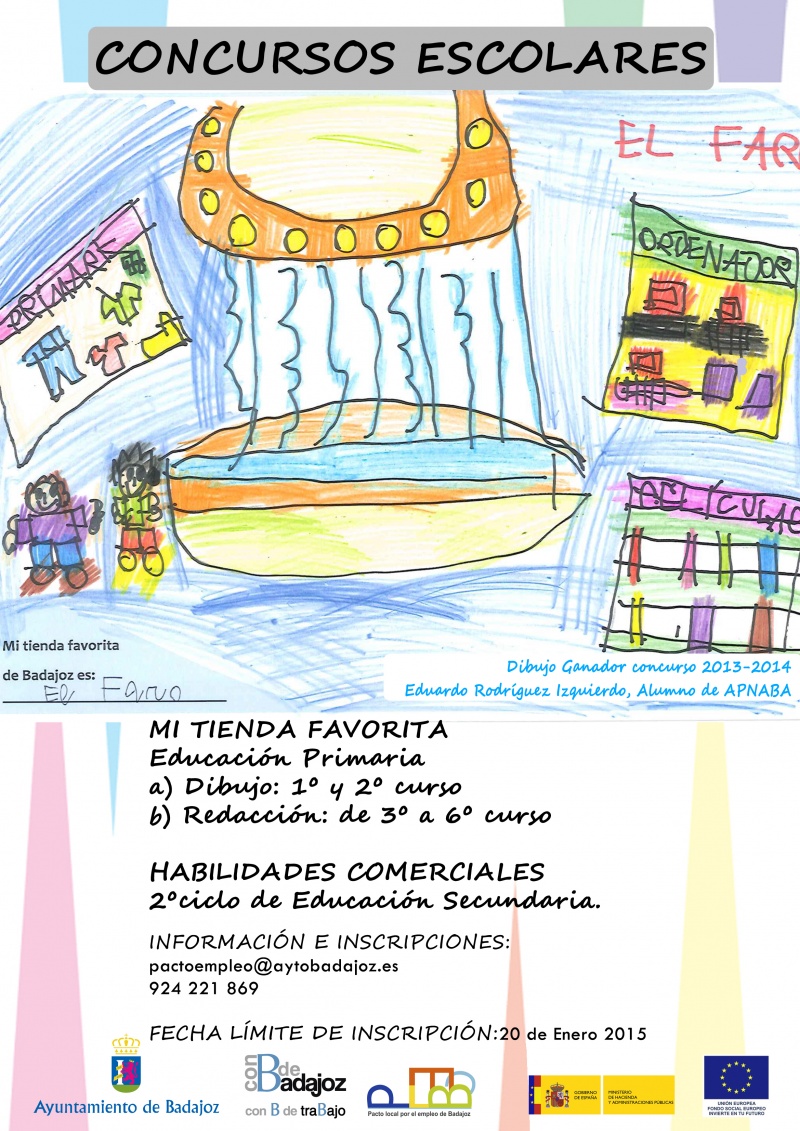 CONCURSOS ESCOLARES
EL FAR
PRIMARK
ORDENADOR
Mi tienda favorita
de Badajoz es:
El Faro
Dibujo Ganador concurso 2013-2014
Eduardo Rodríguez Izquierdo, Alumno de APNABA
MI TIENDA FAVORITA
Educación Primaria
a) Dibujo: 1º y 2º curso
b) Redacción: de 3º a 6º curso
HABILIDADES COMERCIALES
2ºciclo de Educación Secundaria.
INFORMACIÓN E INSCRIPCIONES:
pactoempleo@aytobadajoz.es
924 221 869
FECHA LÍMITE DE INSCRIPCIÓN:20 de Enero 2015
Ayuntamiento de Badajoz
con B de Badajoz
con B de traBajo
Pacto local por el empleo de Badajoz
GOBIERNO
DE ESPAÑA
MINISTERIO
DE HACIENDA
Y ADMINISTRACIONES PÚBLICAS
UNIÓN EUROPEA
FONDO SOCIAL EUROPEO
INVIERTE EN TU FUTURO